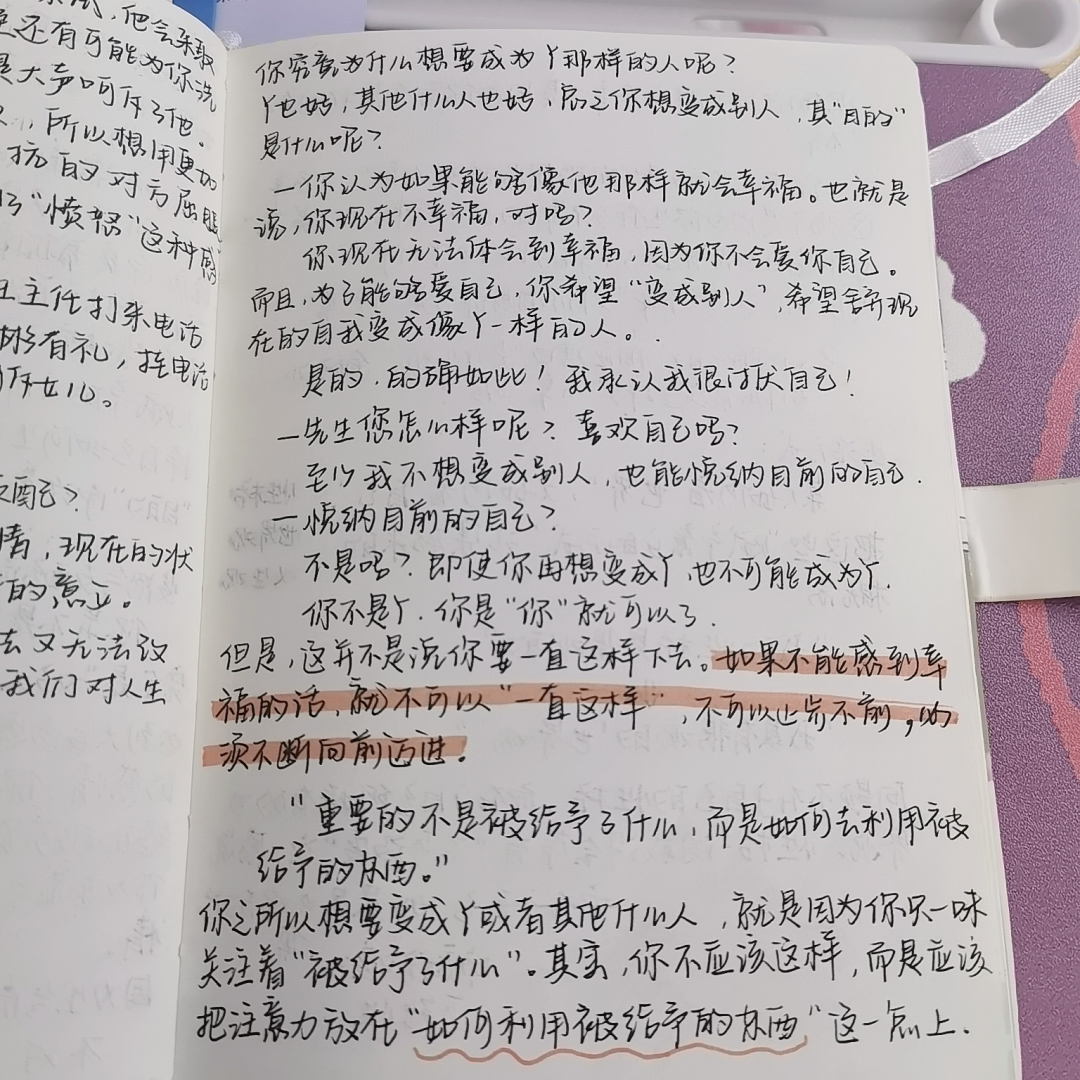 京武，他会采取
还有可能为你洗
是大声呵斥了他。
，所以想用更
抗的对方屈服
"愤怒"这种感
主任打来电话
彬彬有礼，挂电话
斥女儿。
配？
情，现在的状
的意义。
去又无法改
我们对人生
你究竟为什么想要成为Y那样的人呢？
Y也好，其他什么人也好，总之你想变成别人，其"目的"
是什么呢？
—你认为如果能够像他那样就会幸福。也就是
说，你现在不幸福，对吗？
你现在无法体会到幸福，因为你不会爱你自己。
而且，为了能够爱自己，你希望"变成别人"，希望舍弃现
在的自我变成像Y一样的人。
是的，的确如此！我承认我很讨厌自己！
—先生您怎么样呢？喜欢自己吗？
至少我不想变成别人，也能悦纳目前的自己．
—悦纳目前的自己？
不是吗？即使你再想变成Y，也不可能成为Y．
你不是Y．你是"你"就可以了．
但是，这并不是说你要一直这样下去。如果不能感到幸
福的话，就不可以"一直这样"，不可以止步不前，必
须不断向前迈进．
"重要的不是被给予了什么，而是如何去利用被
给予的东西。"
你之所以想要变成Y或者其他什么人，就是因为你只一味
关注着"被给予了什么"。其实，你不应该这样，而是应该
把注意力放在"如何利用被给予的东西"这一点上．